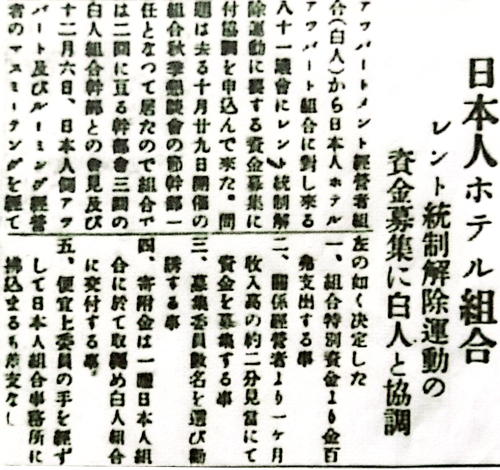 日本人ホテル組合
レント統制解除運動の
資金募集に白人と協調
アパートメント經營者組
合(白人)から日本人ホテル
アパート組合に對し來る
八十一議會にレント統制解
除運動に要する資金募集に
付協調を申込んで來た。問
題は去る十月廿九日開催の
組合秋季懇談會の節幹部一
任となつて居たので組合で
は二回に亘る幹部會三回の
白人組合幹部との會見及び
十二月六日、日本人側アパ
ート及びルーミング經營
者のマスミーテングを經て
左の如く決定した
一、組合特別資金より金百
弗支出する事
二、關係經營者より一ヶ月
收入高の約二分見當にて
資金を募集する事
三、募集委員數名を選び勸
誘する事
四、寄附金は一應日本人組
合に於て取纏め白人組合
に交付する事
五、便宜上委員の手を經ず
して日本人組合事務所に
拂込まるも差支なし